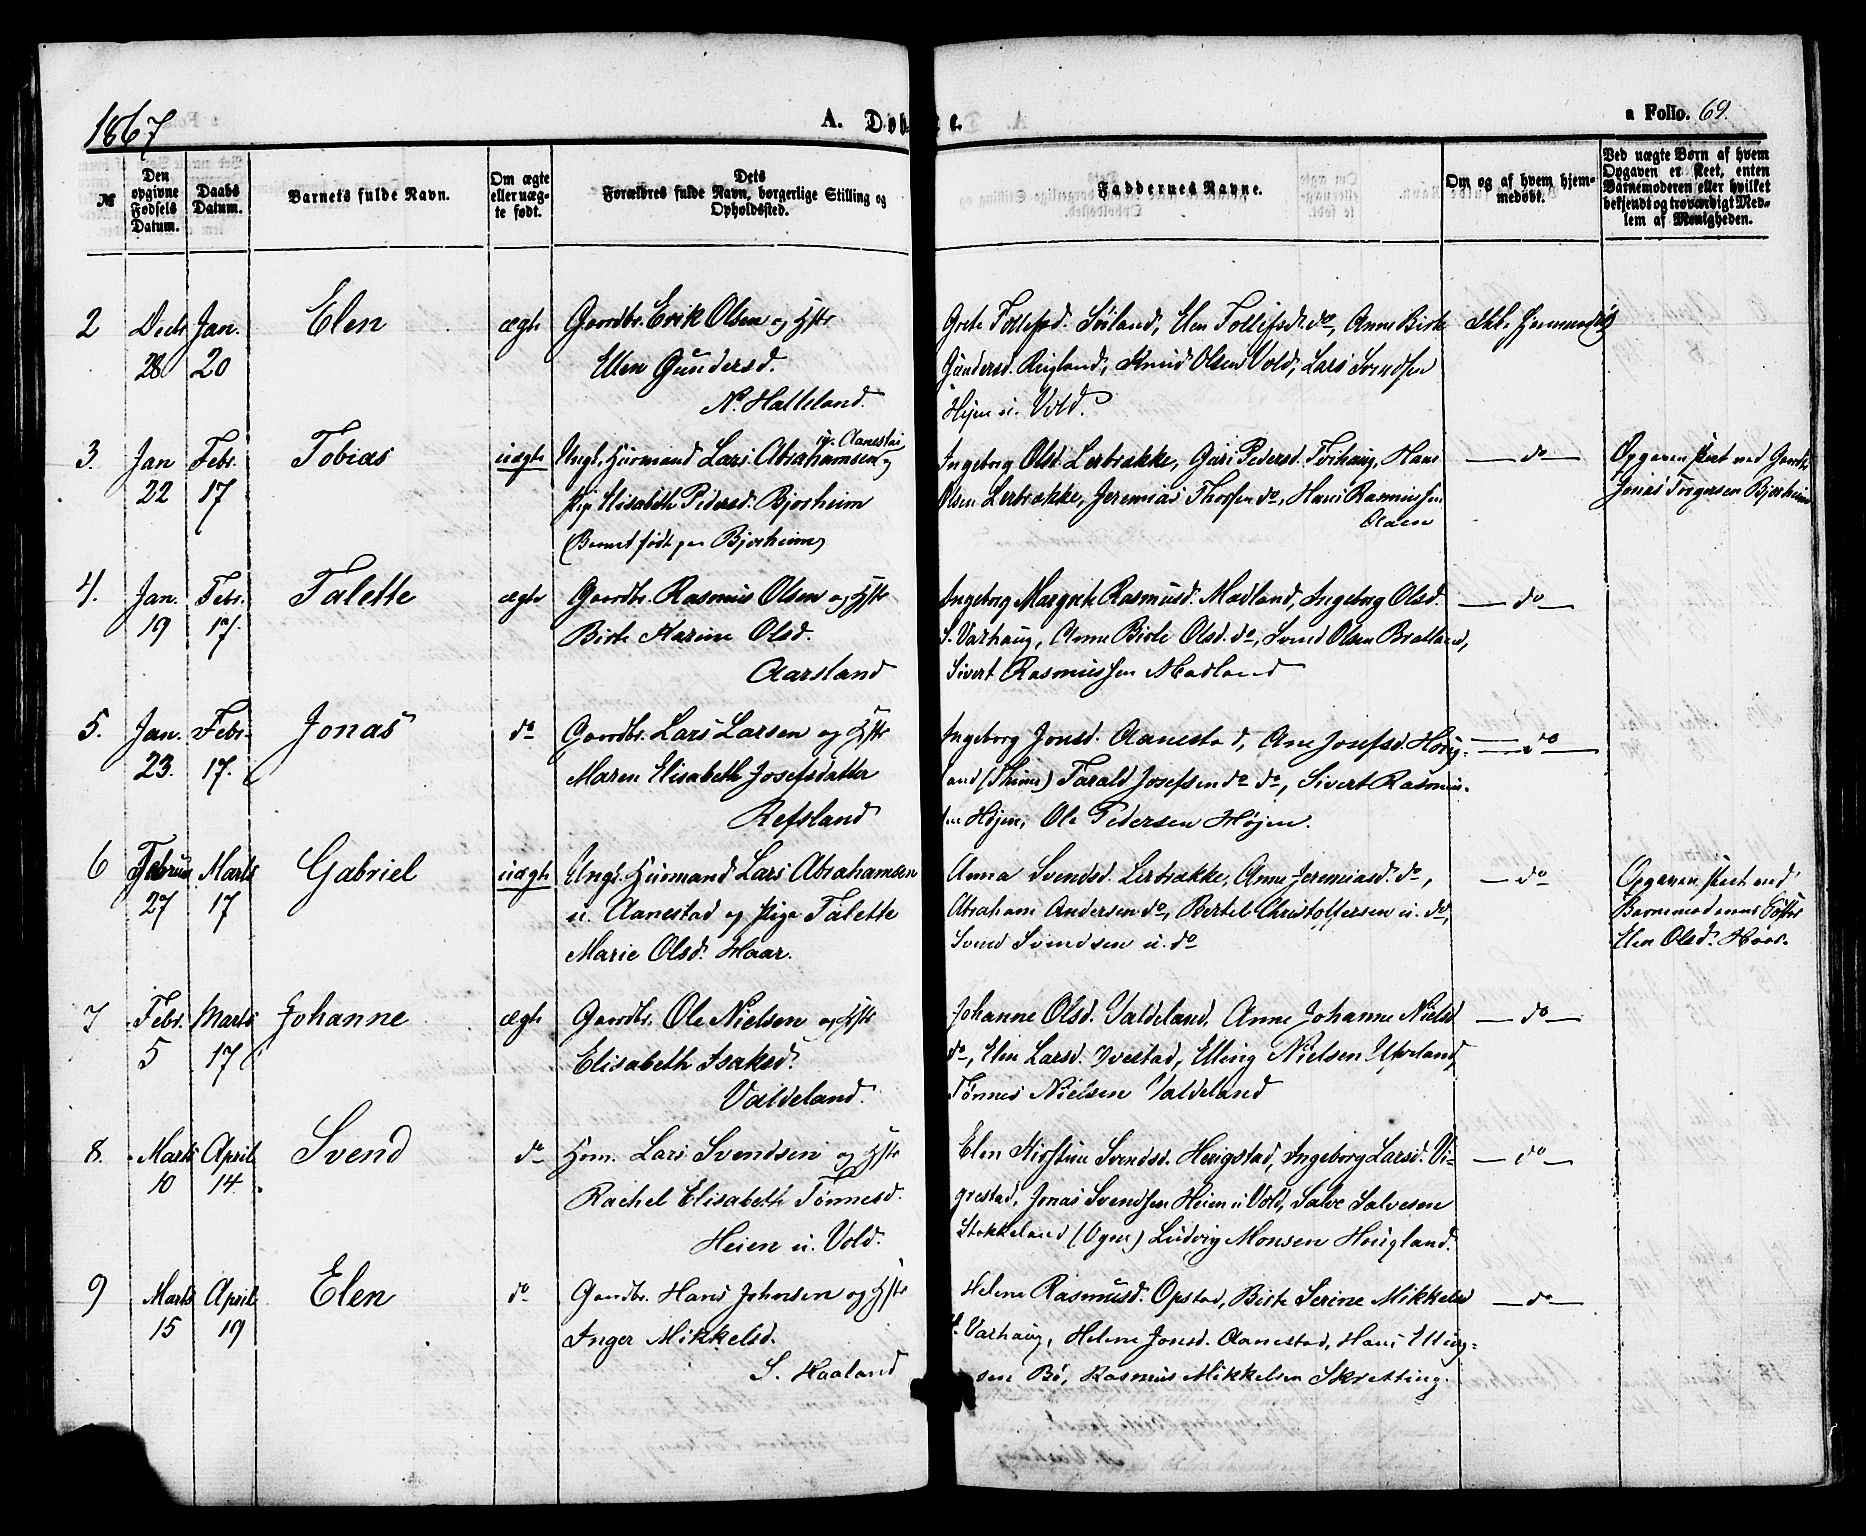 1867
A. Døbte.
a Folio. 69.
№
Den opgivne Fødsels Datum.
Daabs Datum.
Barnets fulde Navn.
Om ægte eller uægte født.
Dets Forældres fulde Navn, borgerlige Stilling og Opholdssted.
Faddernes Navne.
Om og af hvem hjemmedøbt.
Ved uægte Børn af hvem Opgaven er skeet, enten Barnemoderen eller hvilket bekjendt og troværdigt Medlem af Menigheden.
2 Decbr 28 Jan. 20 Elen ægte
Gaardbr. Erik Olsen og Hstr
Ellen Gundersd.
N. Halleland.
Grete Tollefsd. Søiland, Elen Tollefsd. do, Anne Birte
Gundersd. Reigland, Knud Olsen Vold, Lars Svendsen
Høien u. Vold.
Ikke hjemmedøbt
3. Jan 22 Febr. 17 Tobias uægte
Ungk. Huusmand Lars Abrahamsen u. Aanestad og
Pige Elisabeth Pedersd. Bjorheim
(Barnet født paa Bjorheim)
Ingeborg Olsd. Lerbrække, Guri Pedersd. Tvihaug, Hans
Olsen Lerbrække, Jeremias Thorsen do, Hans Rasmussen
Aasen
— do —
Opgaven skeet ved Gaardbr.
Jonas Torgersen Bjorheim
4. Jan. 19 Febr. 17. Talette ægte
Gaardbr. Rasmus Olsen og Hstr
Birte Karine Olsd.
Aarsland
Ingeborg Margrete Rasmusd. Madland, Ingeborg Olsd.
S. Varhaug, Anne Birte Olsd. do, Svend Olsen Bratland,
Sivert Rasmussen Madland
— do —
5. Jan. 23. Febr. 17. Jonas do
Gaardbr. Lars Larsen og Hstr
Maren Elisabeth Josefsdatter
Refsland
Ingeborg Jonsd. Aanestad, Ane Josefsd. Høig-
land (Thime) Tarald Josefsen do do, Sivert Rasmus-
sen Højen, Ole Pedersen Højen.
— do —
6 Februar 27 Marts 17 Gabriel uægte
Ungk. Huusmand Lars Abrahamsen
u. Aanestad og Pige Talette
Marie Olsd. Haar.
Anna Svendsd. Lerbrække, Anne Jeremiasd. do,
Abraham Andersen do, Bertel Christoffersen u. do,
Svend Svendsen u. do
— do —
Opgaven skeet ved
Barnemoderens Søster
Elen Olsd. Haar.
7 Febr. 5 Marts 17 Johanne ægte
Gaardbr. Ole Nielsen og Hstr
Elisabeth Isaksd.
Valdeland.
Johanne Olsd. Valdeland, Anne Johanne Nielsd
do, Elen Larsd. Ivestad, Elling Nielsen Ueland,
Tønnes Nielsen Valdeland
— do —
8. Marts 10 April 14. Svend do
Hsm. Lars Svendsen og Hstr
Rachel Elisabeth Tønnesd.
Heien u. Vold.
Elen Kirstine Svendsd. Herigstad, Ingeborg Larsd. Vi-
grestad, Jonas Svendsen Heien u Vold, Salve Salvesen
Stokkeland (Ogne) Ludvig Monsen Hougland.
— do —
9 Marts 15 April 19 Elen do
Gaardbr. Hans Johnsen og Hstr
Inger Mikkelsd.
S. Haaland
Helene Rasmusd. Opstad, Birte Serine Mikkelsd
S. Varhaug, Helene Jonsd. Aanestad, Hans Elling-
sen Bø, Rasmus Mikkelsen Skretting.
— do —